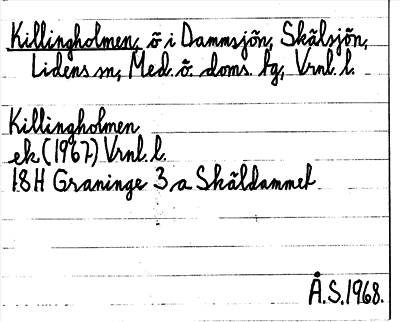 Killingholmen, ö i Dammsjön, Skälsjön,
Lidens sn, Med. ö. doms. tg, Vrnl. l.
Killingholmen
ek (1967) Vrnl. l.
18H Graninge 3 a Skäldammet
Å.S. 1968.